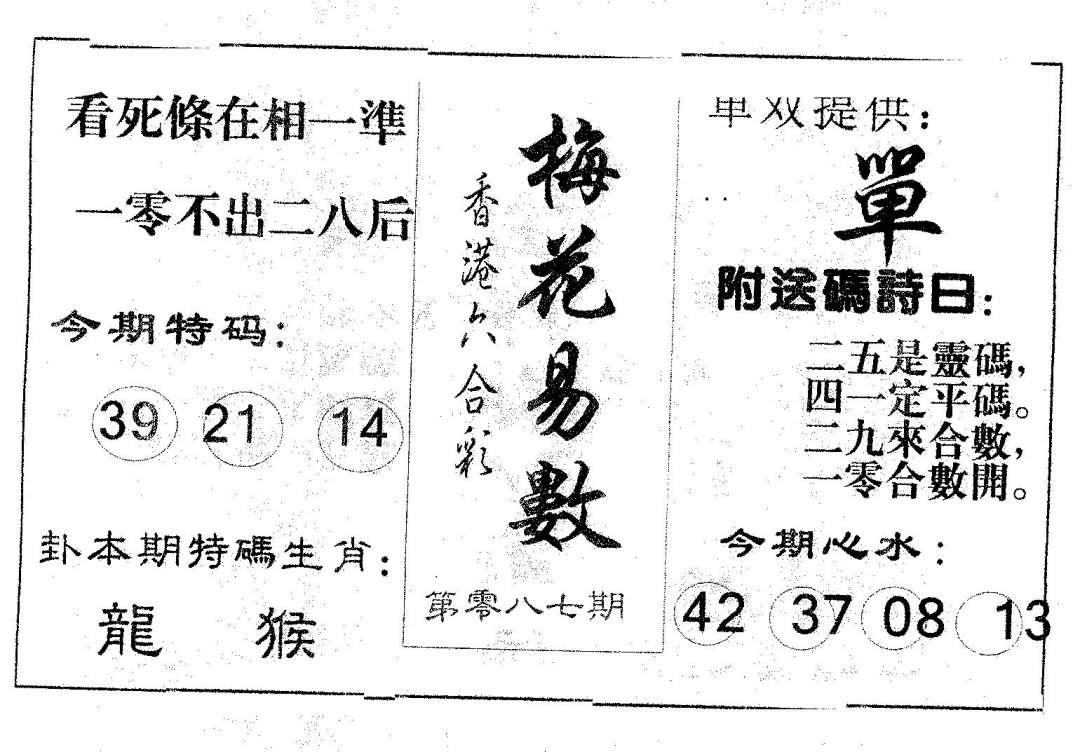 看死條在相一準
一零不出二八后
今期特码:
39 21 14
卦本期特碼生肖:
龍 猴
梅花易數
香港六合彩
第零八七期
单双提供:
單
附送碼詩曰:
二五是靈碼,
四一定平碼。
二九來合數,
一零合數開。
今期心水:
42 37 08 13